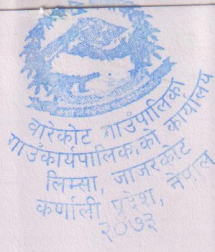 बारेकोट गाउँपालिका
गाउँकार्यपालिकाको कार्यालय
लिम्सा, जाजरकोट
कर्णाली प्रदेश, नेपाल
२०७३